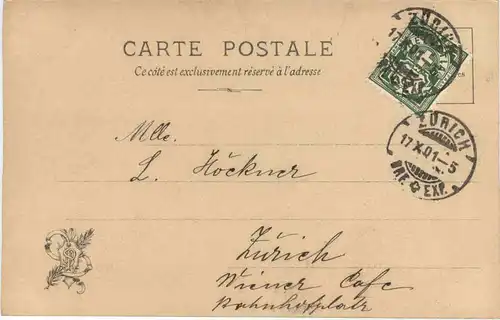 CARTE POSTALE
Ce côté est exclusivement réservé à l'adresse
ZÜRICH
17 X.01-5
BRF. EXP.
Mlle.
L. Höckner
Zürich
Wiener Café
Bahnhofplatz